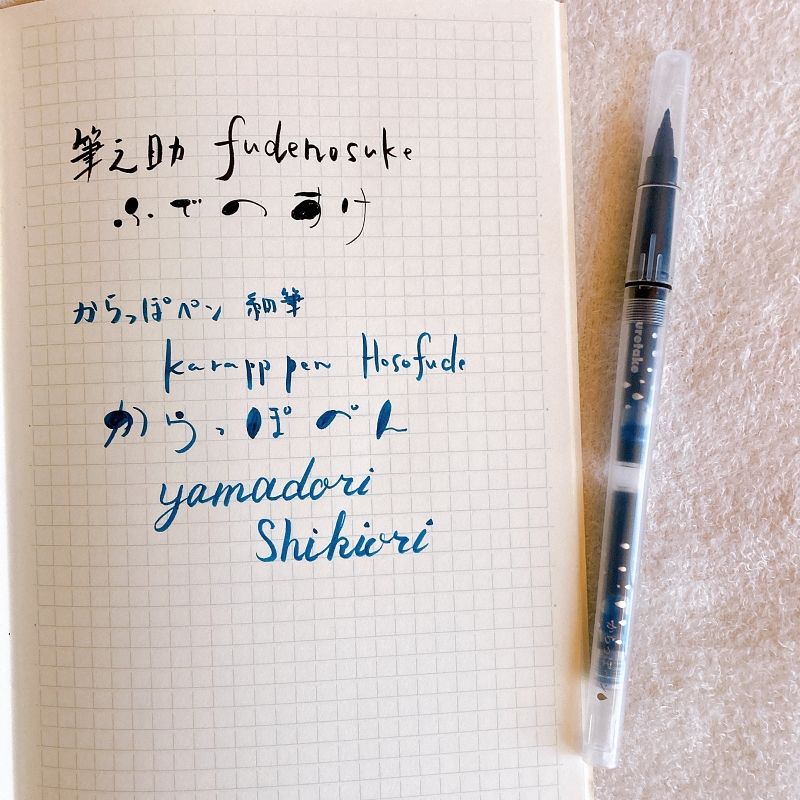 筆之助 fudenosuke
ふでのすけ
からっぽペン 細筆
karapp pen Hosofude
からっぽぺん
yamadori
Shikiori
uretake
からっぽペン